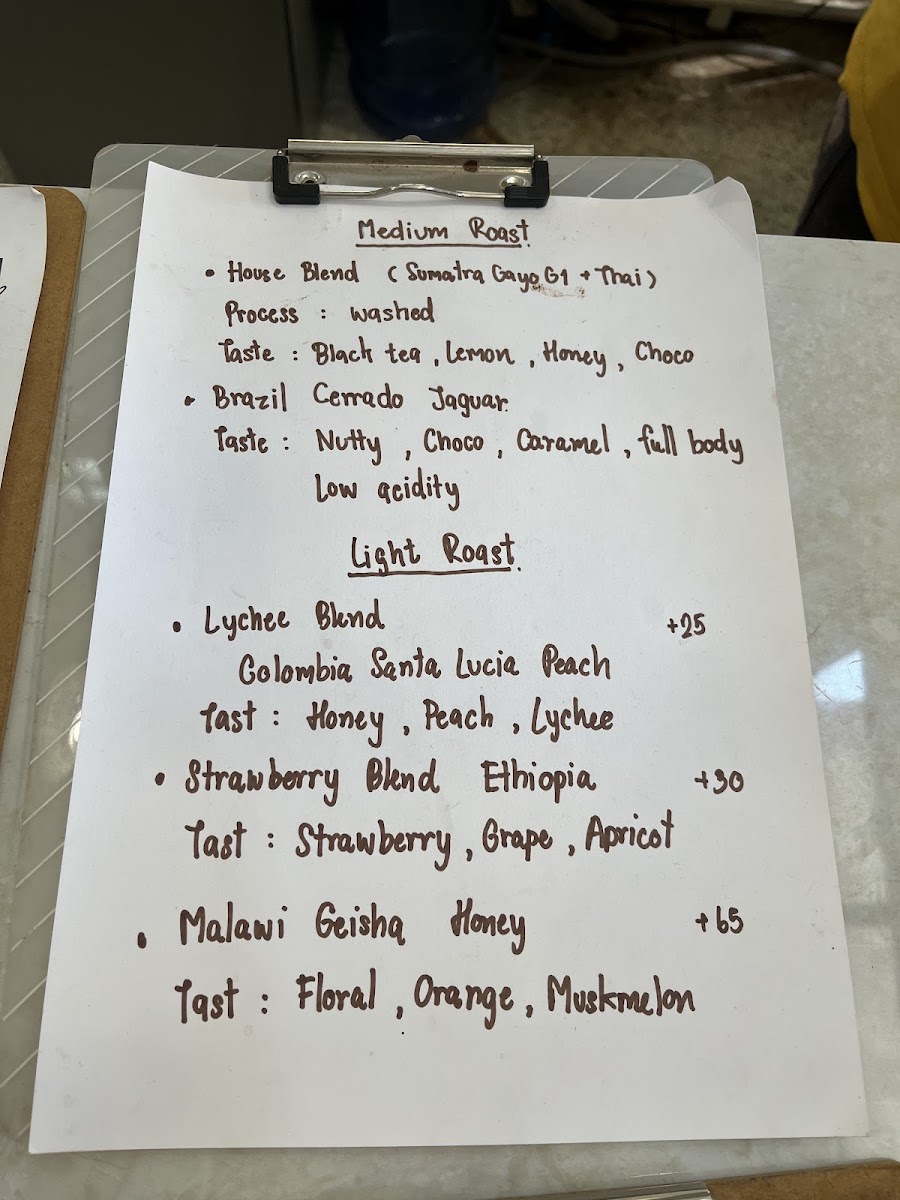 Medium Roast
• House Blend (Sumatra Gayo G1 + Thai)
Process : washed
Taste : Black tea , Lemon , Honey , Choco
• Brazil Cerrado Jaguar
Taste : Nutty , Choco , Caramel , full body
Low acidity
Light Roast
• Lychee Blend +25
Colombia Santa Lucia Peach
Tast : Honey , Peach , Lychee
• Strawberry Blend Ethiopia +30
Tast : Strawberry , Grape , Apricot
• Malawi Geisha Honey +65
Tast : Floral , Orange , Muskmelon